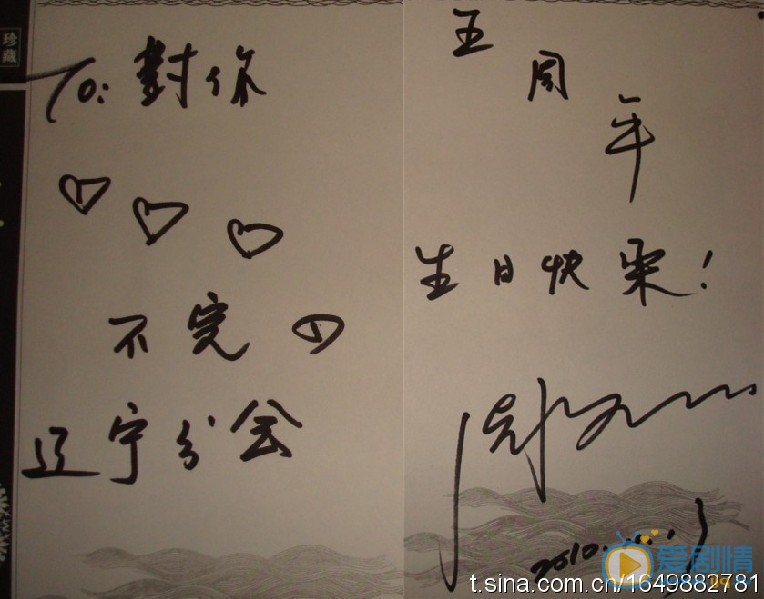 珍藏
To: 對你
♡ ♡ ♡
不完
辽宁分会
五周年
生日快乐!
2010.
爱剧情
t.sina.com.cn/1649882781